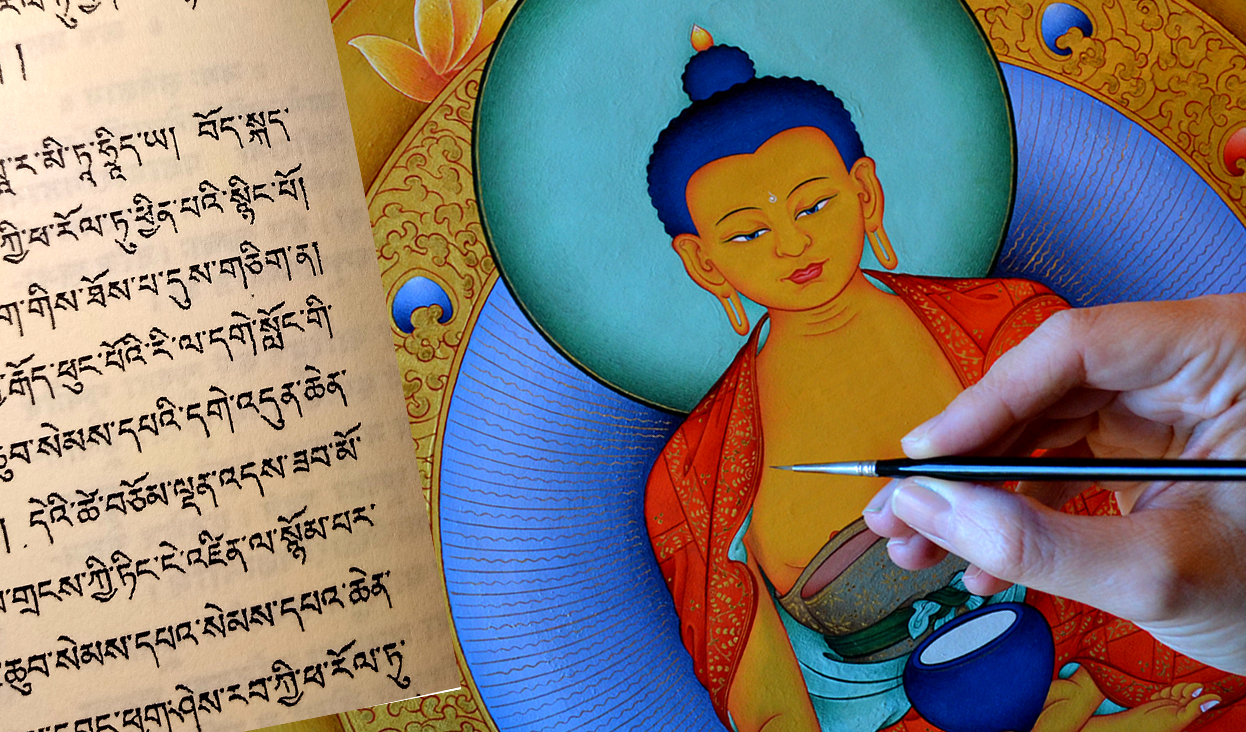 ར་མི་ཏཱ་ཧྲྀ་ད་ཡ། བོད་སྐད་
ཀྱི་ཕ་རོལ་ཏུ་ཕྱིན་པའི་སྙིང་པོ།
གིས་ཐོས་པ་དུས་གཅིག་ན།
རྒོད་ཕུང་པོའི་རི་ལ་དགེ་སློང་གི་
ཆུབ་སེམས་དཔའི་དགེ་འདུན་ཆེན་
། དེའི་ཚེ་བཅོམ་ལྡན་འདས་ཟབ་མོ་
གྲངས་ཀྱི་ཏིང་ངེ་འཛིན་ལ་སྙོམས་པར་
ཆུབ་སེམས་དཔའ་སེམས་དཔའ་ཆེན་
དབང་ཕྱུག་ཤེས་རབ་ཀྱི་ཕ་རོལ་ཏུ་